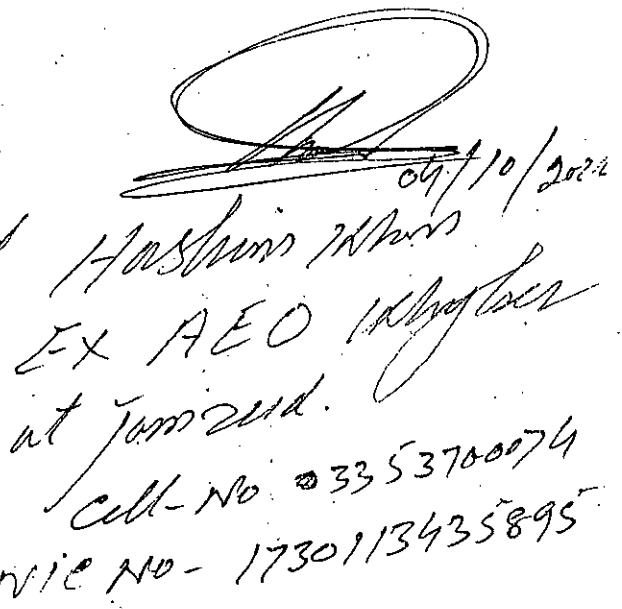 04/10/2022
Hashim Khan
Ex AEO Khyber
at Jamrud.
Cell-No 03353700074
NIC No- 1730113435895